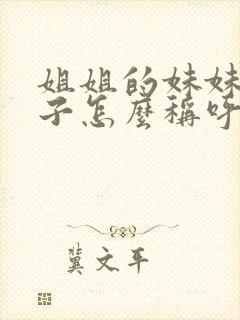 姐姐的妹妹
子怎麼稱呼
冀文平